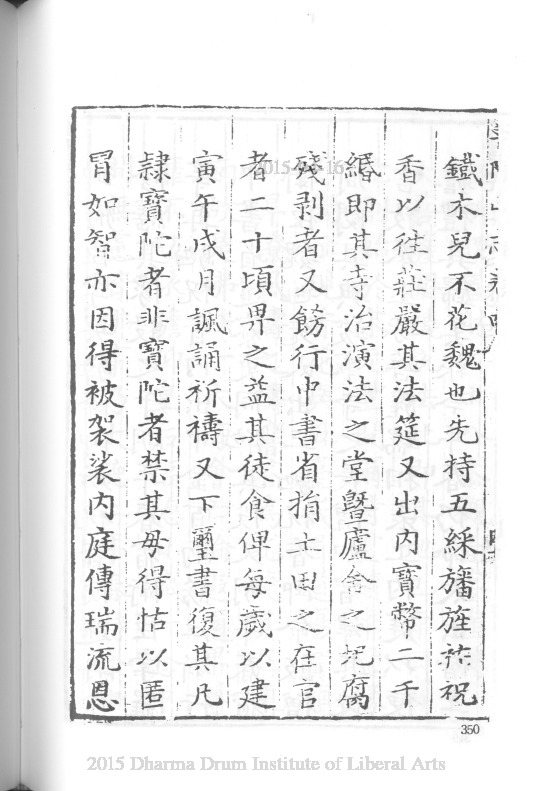 鐵木兒不花魏也先持五綵旛旌祝
香以徃莊嚴其法筵又出内寶幣二千
緡即其寺治演法之堂曁廬舍之圮腐
殘剥者又餝行中書省捐土田之在官
者二十頃畀之益其徒食俾每歲以建
寅午戌月諷誦祈禱又下璽書復其凡
隷寳陀者非寳陀者禁其毋得怙以匿
冐如智亦因得被袈裟内庭傳瑞流恩
350
2015 Dharma Drum Institute of Liberal Arts